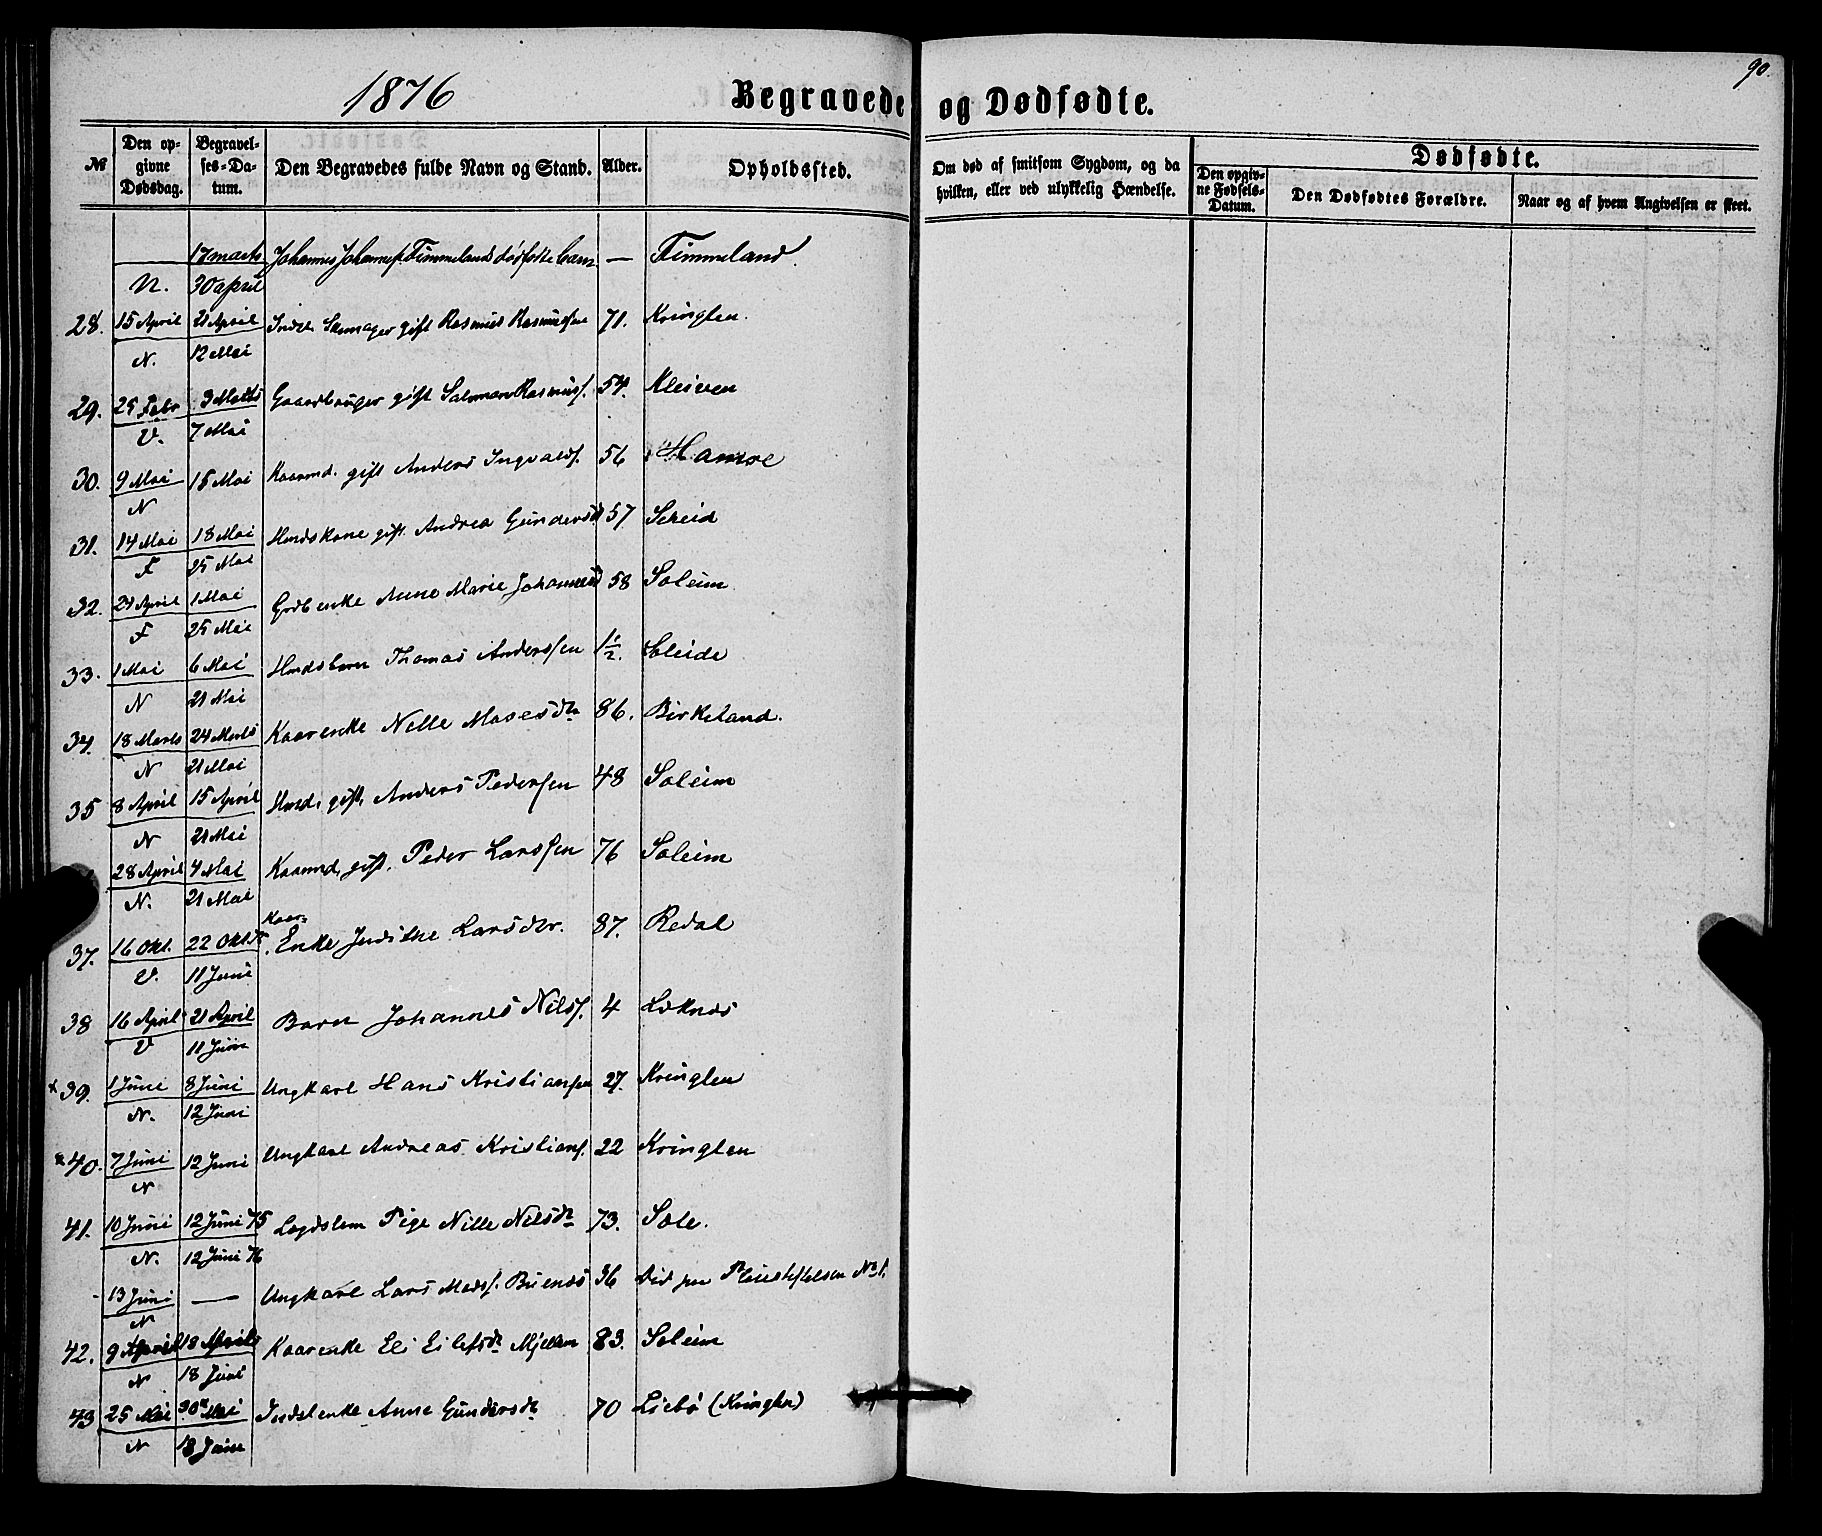 90.
1876 Begravede og Dødfødte.
№ Den opgivne Dødsdag. Begravelses-Datum. Den Begravedes fulde Navn og Stand. Alder. Opholdssted. Om død af smitsom Sygdom, og da hvilken, eller ved ulykkelig Hændelse. Dødfødte. Den opgivne Fødsels-Datum. Den Dødfødtes Forældre. Naar og af hvem Angivelsen er skeet.
17 marts Johannes Johannes. Timmelands dødfødte barn — Timmeland.
N. 30 april
28. 15 April 21 April gift Rasmus Rasmussen 71. Kringlen.
N. 12 Mai
29. 25 Febr 3 Marts Gaardbruger gift Salomon Rasmusf. 54. Kleiven
V. 7 Mai
30. 9 Mai 15 Mai Kaarmd. gift Anders Ingvaldf. 56 Hamre
N
31. 14 Mai 18 Mai Hmdskone gift. Andrea Gundersd 57 Scheid
F 25 Mai
32. 24 April 1 Mai Grdb enke Anne Marie Johannesd 58 Soleim
F 25 Mai
33. 1 Mai 6 Mai Hmdsbarn Thomas Anderssen 1½. Scleide
N 21 Mai
34. 18 Marts 24 Marts Kaarenke Nille Mosesdtr 86. Birkeland.
N 21 Mai
35 8 April 15 April Hmd. gift. Anders Pedersen 48 Soleim
N 21 Mai
28 April 4 Mai Kaarmd. gift. Peder Larssen 76 Soleim
N. 21 Mai
37. 16 Okt. 22 Oktbr Kaar- Enke Judithe Larsdtr. 87. Redal
V. 11 Juni
38 16 April 21 April Barn Johannes Nilsf. 4 Løknes
V 11 Juni
x 39. 1 Juni 8 Juni Ungkarl Hans Kristiansen 27. Kringlen
N. 12 Juni
x 40. 7 Juni 12 Juni Ungkarl Andreas Kristiansf. 22 Kringlen
N
41. 10 Juni 12 Juni 75 Lægdslem Pige Nille Nilsdtr 73. Sole.
N. 12 Juni 76
13 Juni — Ungkarl Lars Madsf. Buenes 36 på Pleiestiftelsen No 1.
N
42. 9 April 18 April Kaarenke Eli Eilefsdtr Mjellem 83. Soleim
N 18 Juni
43 25 Mai 30te Mai Indstenke Anne Gundersdtr 70 Liebø (Kringlen)
N 18 Juni